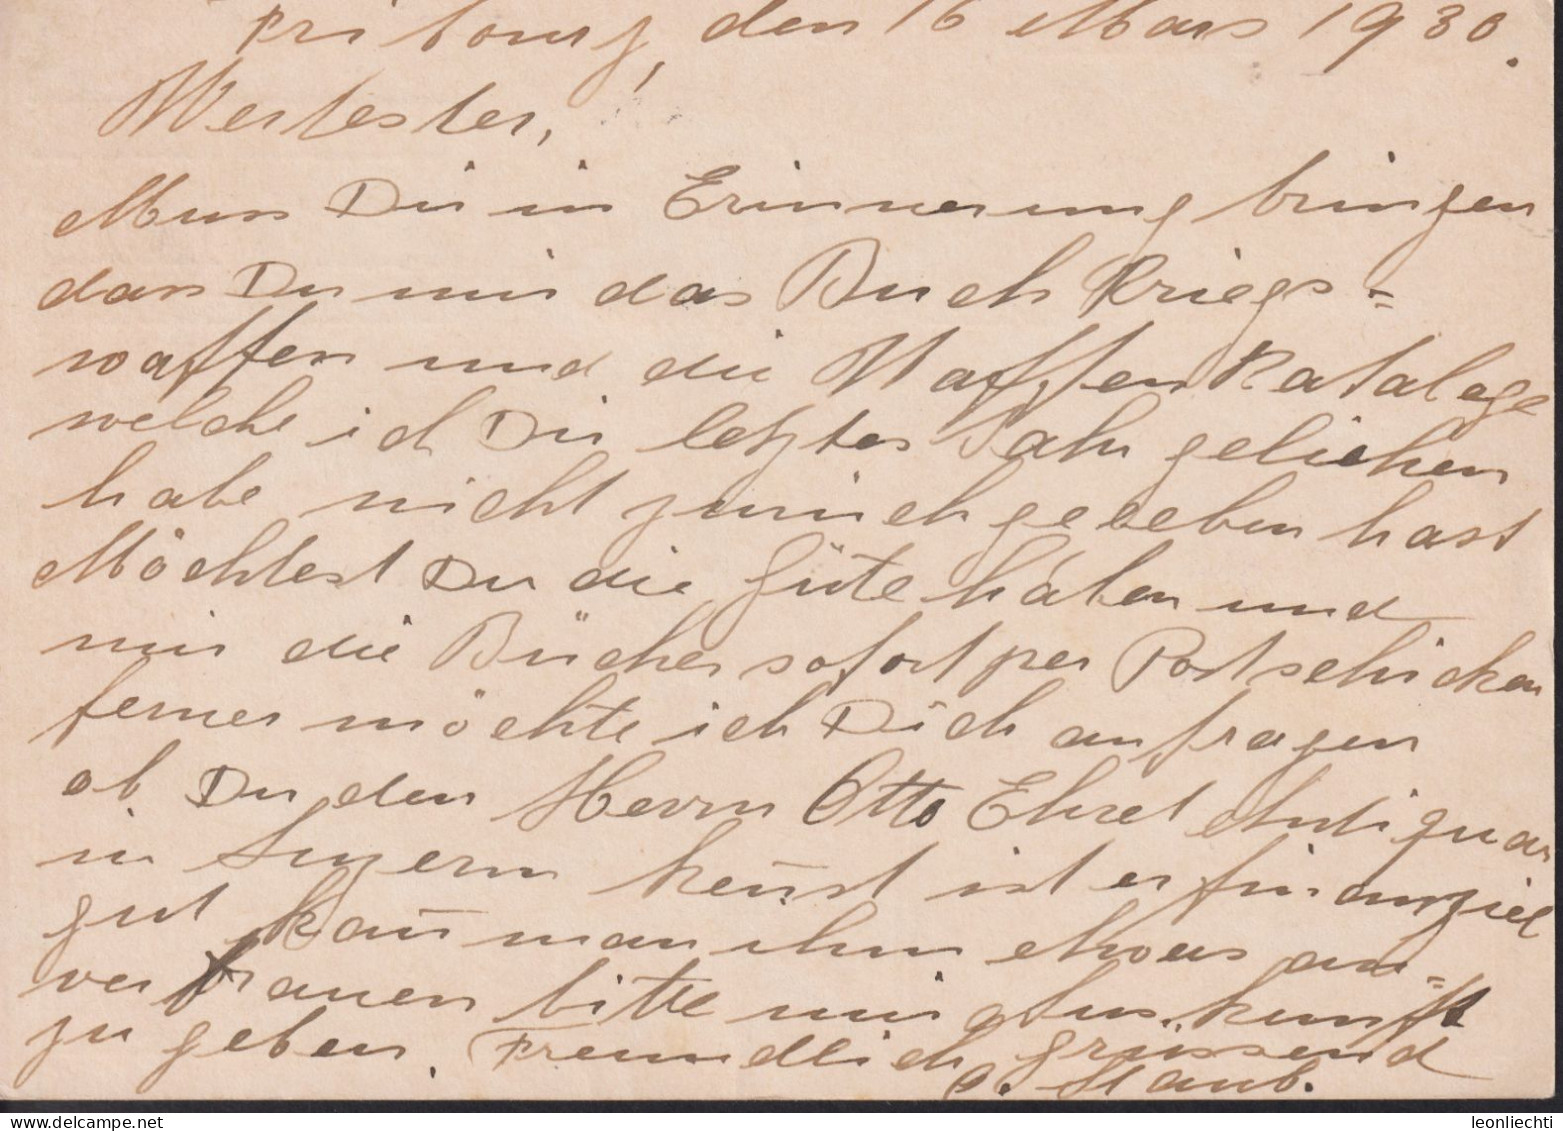 Fribourg, den 16 Mars 1930.
Wertester,
Muss Dir in Erinnerung bringen
dass Du mir das Buch Kriegs=
waffen und die Waffen Kataloge
welche ich Dir letztes Jahr geliehen
habe nicht zurückgegeben hast
Möchtest Du die Güte haben und
mir die Bücher sofort per Post schicken
ferner möchte ich Dich anfragen
ob Du den Herrn Otto Ehret Antiquar
in Luzern kenst ist er finanziel
gut kan̄ man ihm etwas an=
vertrauen bitte mir Auskunft
zu geben. Freundlich grüssend
O. Staub.
leonliechti